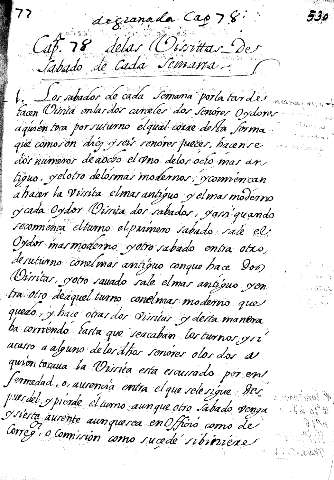 77
de granada Cap 78.
530
Cap. 78 de las Visittas de
Sabado de Cada Semana
1. Los sabados de cada semana por la tarde
hacen Visita en las dos carceles dos Señores Oydores
a quien toca por su turno el qual corre desta forma
que como son diez y seis señores jueces, hacen se
dos numeros de a ocho el uno de los ocho mas an
tiguo, y el otro de los mas modernos; y comiençan
a hacer la Visita el mas antiguo y el mas moderno
y cada Oydor Visita dos sabados, y asi quando
se comiença el turno el primero sabado sale el
Oydor mas moderno, y otro sabado entra otro,
de su turno con el mas antiguo con que hace dos
Visitas, y otro sauado sale el mas antiguo y en
tra otro de aquel turno con el mas moderno que
quedo, y hace otras dos Visitas y desta manera
ba corriendo hasta que se acaban los turnos, y si
acaso a alguno de los dhos señores o los dos a
quien tocaua la Visita está escusado por en
fermedad, o ausencia entra el que se le sigue des
pues del y pierde el turno aunque otro sabado venga
y si esta ausente aunque sea en Officio como de
Correg.or o Comision como sucede si biniese